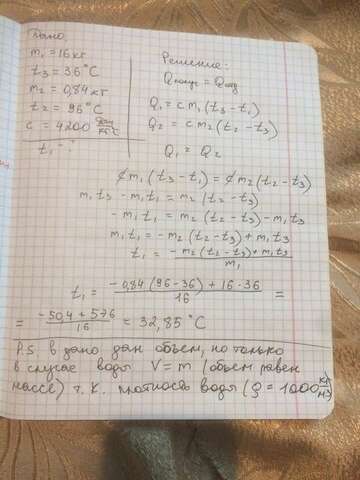 Дано:
m₁ = 16 кг
t₃ = 36°C
m₂ = 0,84 кг
t₂ = 96°C
c = 4200 Дж/кг°C
t₁ - ?
Решение:
Q₁ = cm₁(t₃-t₁)
Q₂ = cm₂(t₂-t₃)
Q₁ = Q₂
c̸m₁(t₃-t₁) = c̸m₂(t₂-t₃)
m₁t₃ - m₁t₁ = m₂(t₂-t₃)
-m₁t₁ = m₂(t₂-t₃)-m₁t₃
m₁t₁ = -m₂(t₂-t₃)+m₁t₃
t₁ = -m₂(t₂-t₃)+m₁t₃/m₁
t₁ = -0,84(96-36)+16·36/16 =
= -50,4+576/16 = 32,85°C
P.S в дано дан объем, но только
в случае воды V=m (объем равен
массе) т.к. плотность воды (ρ = 1000 кг/м3)